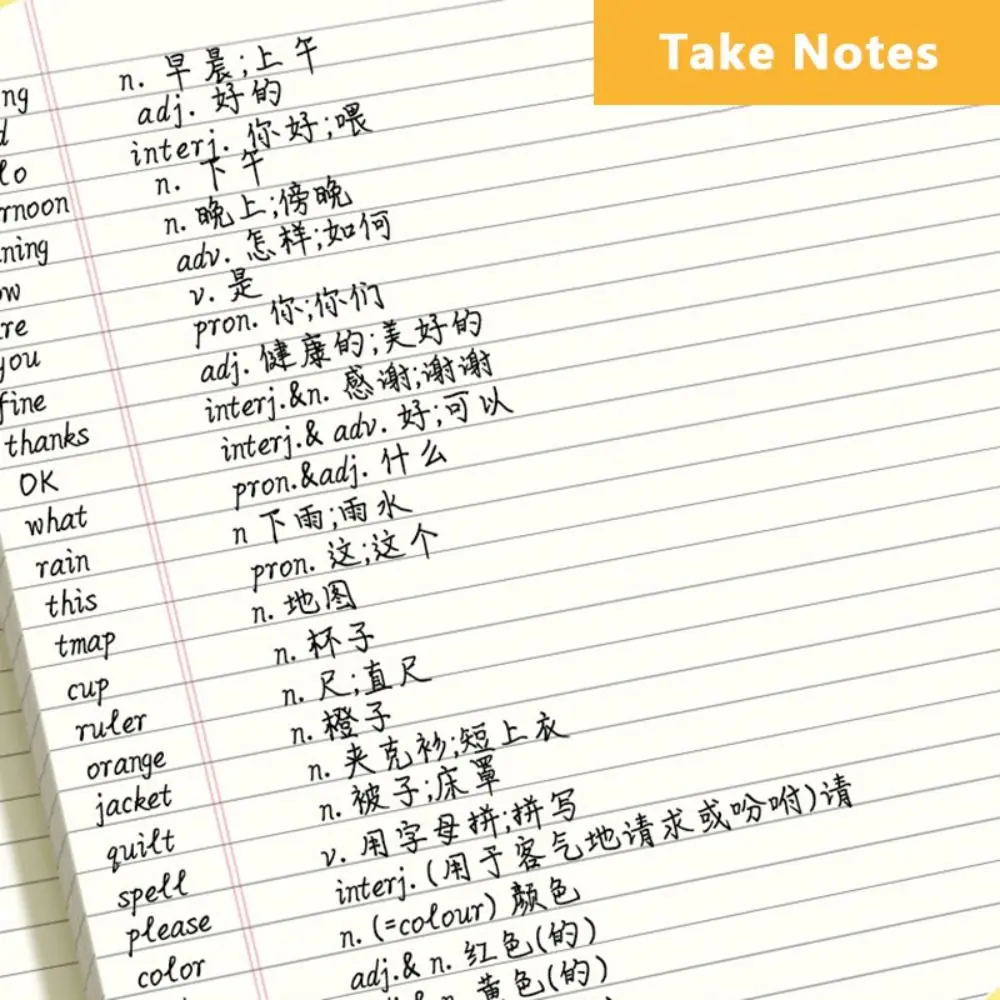 Take Notes
ng n. 早晨;上午
d adj. 好的
lo interj. 你好;喂
rnoon n. 下午
ning n. 晚上;傍晚
ow adv. 怎样;如何
re v. 是
you pron. 你;你们
fine adj. 健康的;美好的
thanks interj.&n. 感谢;谢谢
OK interj.& adv. 好;可以
what pron.&adj. 什么
rain n 下雨;雨水
this pron. 这;这个
tmap n. 地图
cup n. 杯子
ruler n. 尺;直尺
orange n. 橙子
jacket n. 夹克衫;短上衣
quilt n. 被子;床罩
spell v. 用字母拼;拼写
please interj. (用于客气地请求或吩咐)请
color n. (=colour) 颜色
adj.& n. 红色(的)
黄色(的)